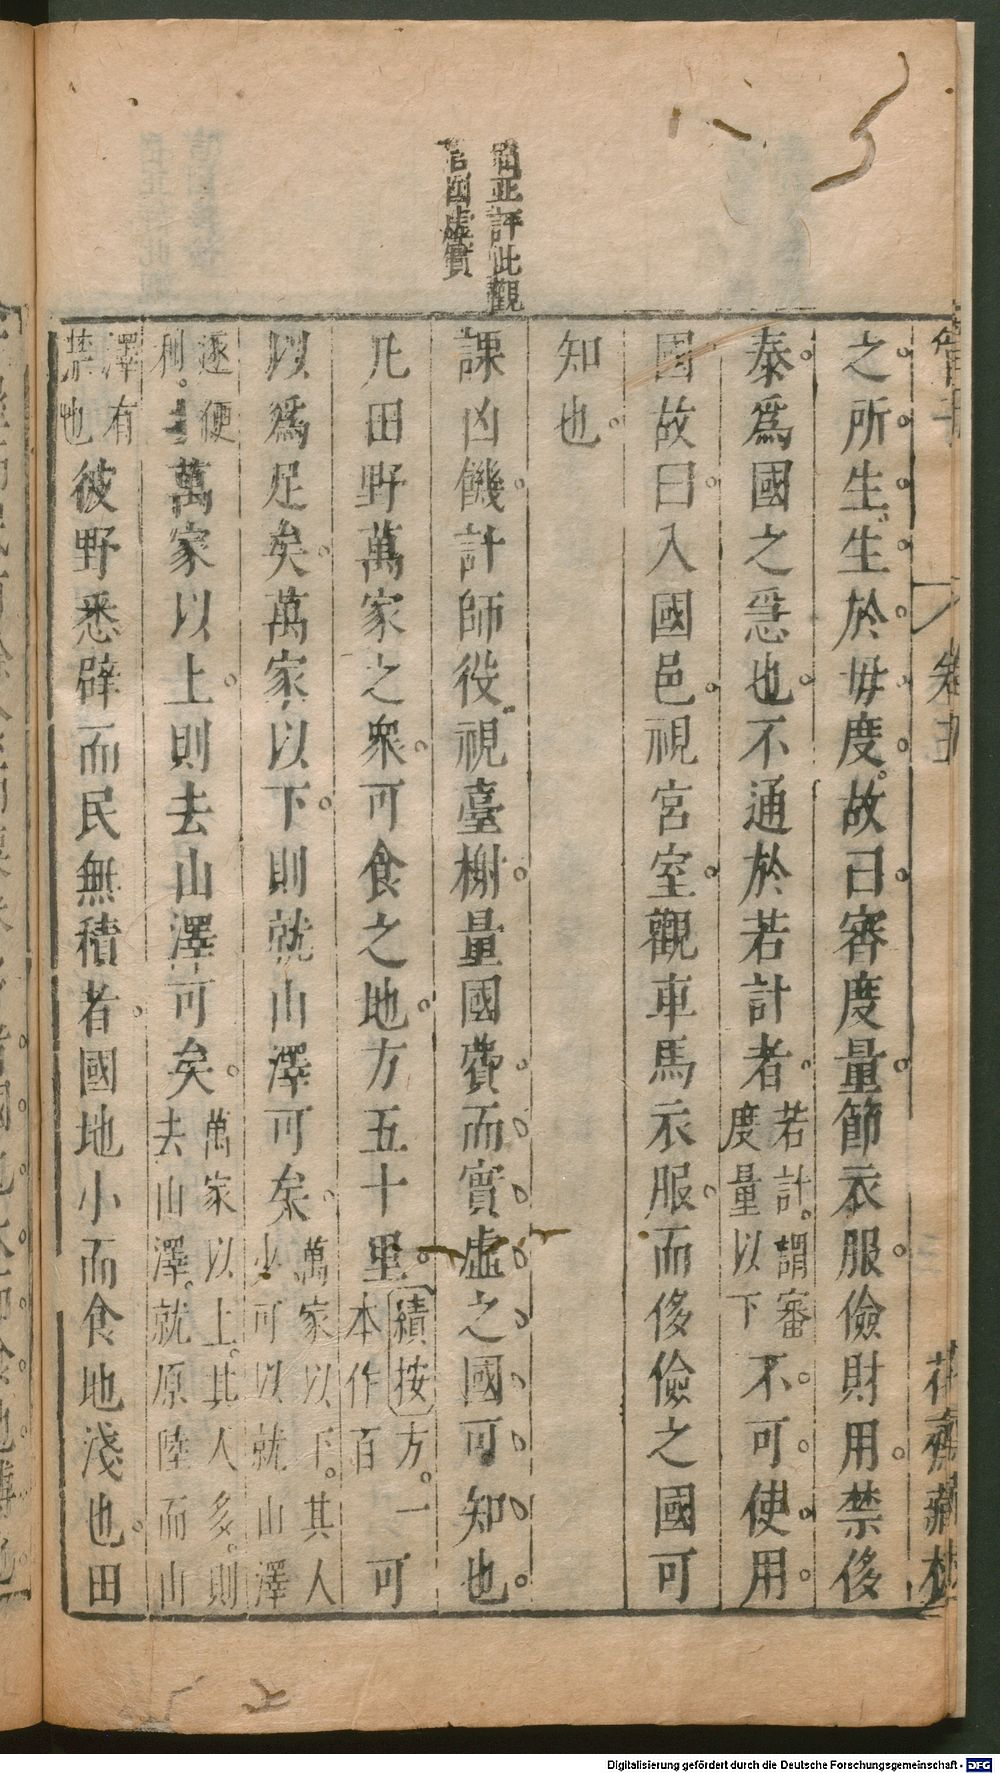 管子
卷五
花齋藏板
之所生。生於毋度。故曰審度量節衣服儉財用禁侈
泰爲國之急也不通於若計者若計。謂審
度量以下不可使用
國故曰入國邑視宮室觀車馬衣服而侈儉之國可
知也
評此觀
國虛實
課凶饑計師役視臺榭量國費而實虛之國可知也
凡田野萬家之衆可食之地方五十里績按方。一
本作百可
以爲足矣萬家以下則就山澤可矣萬家以下。其人
少可以就山澤
逐便
利。萬家以上則去山澤可矣萬家以上。其人多。則
去山澤。就原陸而山
澤有
禁也彼野悉辟而民無積者國地小而食地淺也田
Digitalisierung gefördert durch die Deutsche Forschungsgemeinschaft - DFG